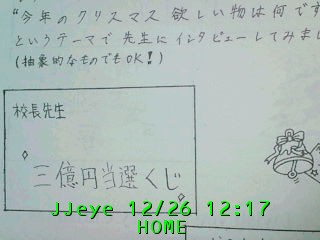 "今年のクリスマス欲しい物は何です
というテーマで先生にインタビューしてみまし
(抽象的なものでもOK!)
校長先生
三億円当選くじ
JJeye 12/26 12:17
HOME